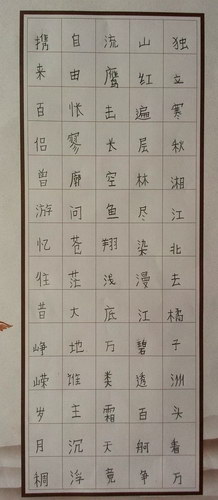 独立寒秋湘江北去橘子洲头看万
山红遍层林尽染漫江碧透百舸争
流鹰击长空鱼翔浅底万类霜天竞
自由怅寥廓问苍茫大地谁主沉浮
携来百侣曾游忆往昔峥嵘岁月稠